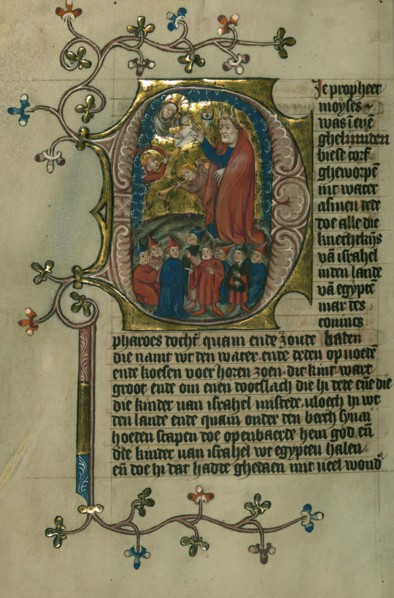 Je propheet
moyses
was i ene
ghebunden
biese corf
gheworpen
int water
als men dede
doe alle die
knechtkijs
vā israhel
inden lande
vā egypte
mar des
conincs
pharoes dochē quam ende zoude baten
die namt wt den water ende deden op uoedē
ende koesen voer horen zoen dit kint wart
groot ende om enen dootslach die hi dede
die kinder uan israhel vloech hi wt
den lande ende quam onder den berch synai
hoeden scapen doe openbaerde hem god eñ
die kinder uan israhel wt egypten halen
eñ doe hi dat hadde ghedaen mit ueel wond